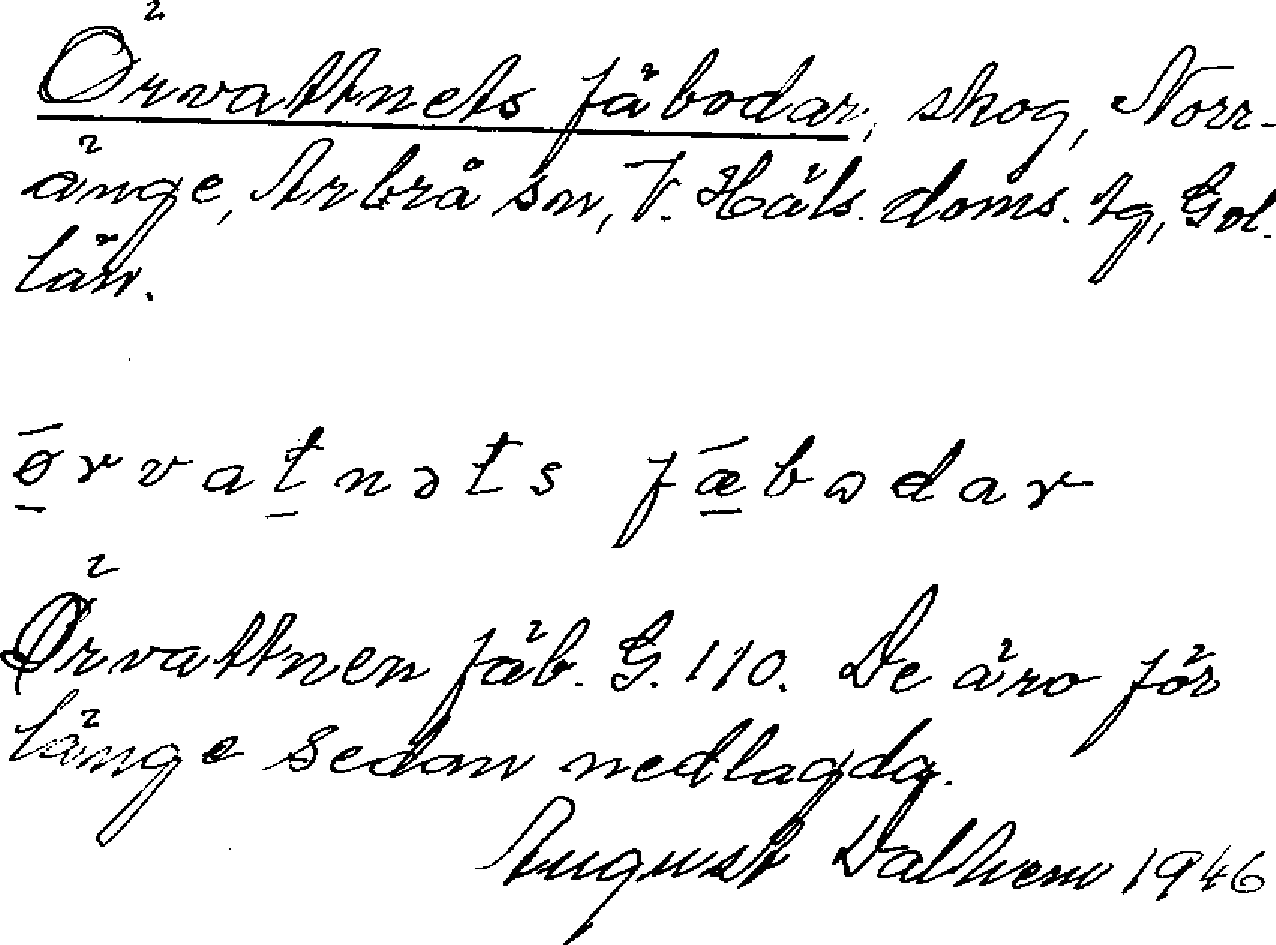 Örvattnets fäbodar, skog, Norr-
änge, Arbrå sn, V. Häls. doms. tg, Gvl.
län.
ø̄rvatnəts fǣbωdar
Örvattnen fäb. G. 110. De äro för
länge sedan nedlagda.
August Dalhem 1946